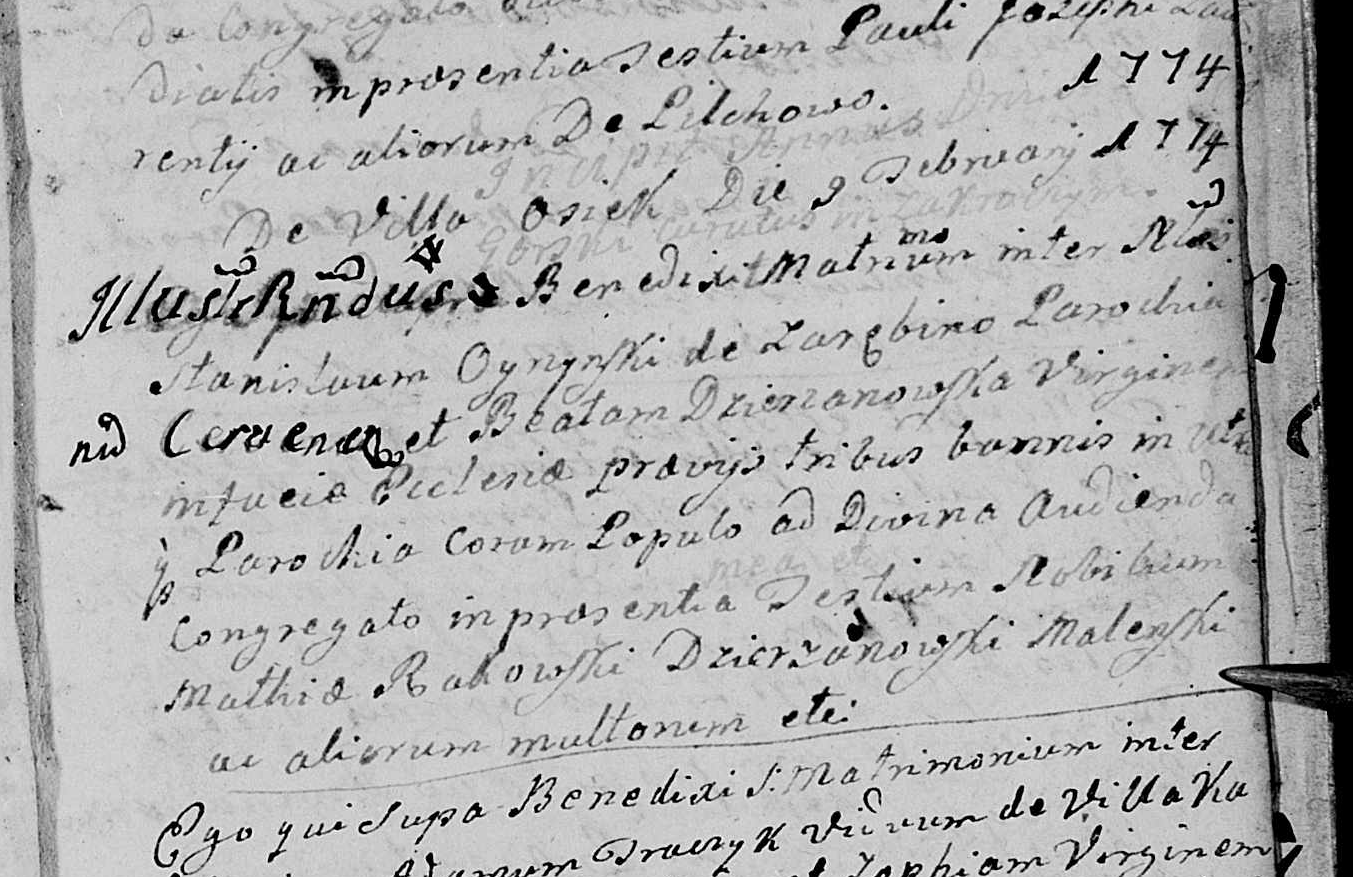 de Congregato
diatis in præsentia Testium Pauli Josephi Lau
rentij ac aliorum De Pilchowo.
1774
De Villa Osiek Die 9 Februarij 1774
Illustr Rndus Benedixit Matrium mo inter Nlẽs
Stanislaum Oynynski de Zarębino Parochia
nid Cervena et Beatam Dzierzanowska Virginem
in facie Ecclesiæ prævijs tribus bannis in utr
Parochia Coram Populo ad Divina Audienda
Congregato in præsentia Testium Nobilium
Mathiæ Rakowski Dzierzanowski Malenski
ac aliorum multorum etc:
Ego qui Supa Benedixi S: Matrimonium inter
Adamum Traczyk Viduum de Villa Ka
et Zophiam Virginem